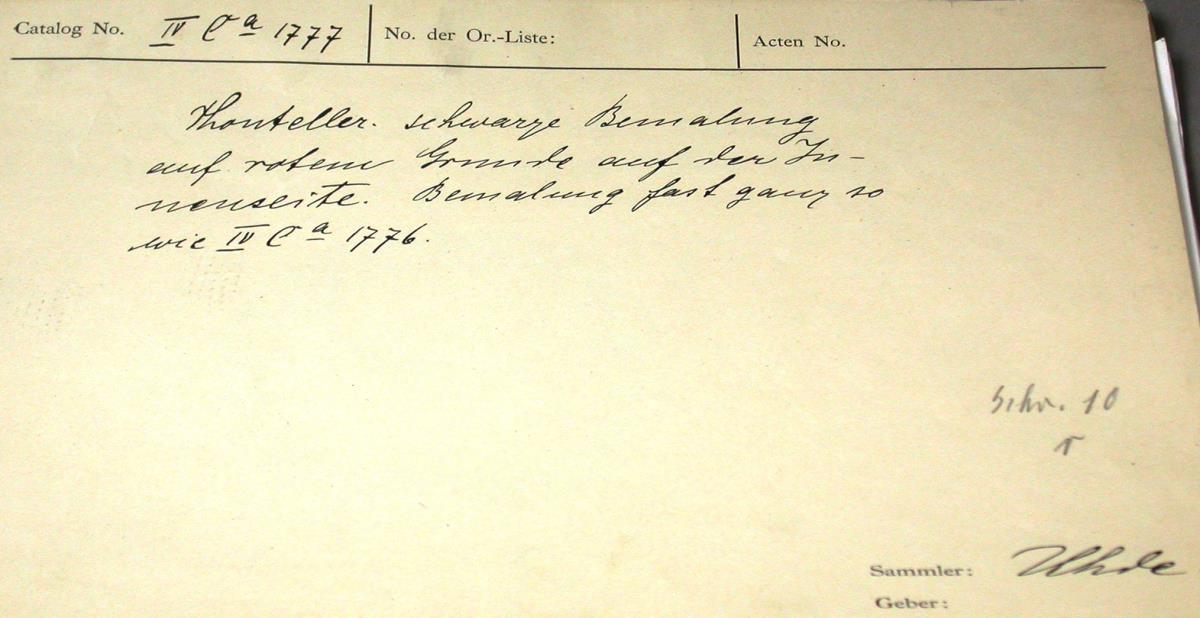 Catalog No. IV Ca 1777 No. der Or.-Liste: Acten No.
Thonteller. schwarze Bemalung
auf rotem Grunde auf der In-
nenseite. Bemalung fast ganz so
wie IV Ca 1776.
Schr. 10
r
Sammler: Uhde
Geber: